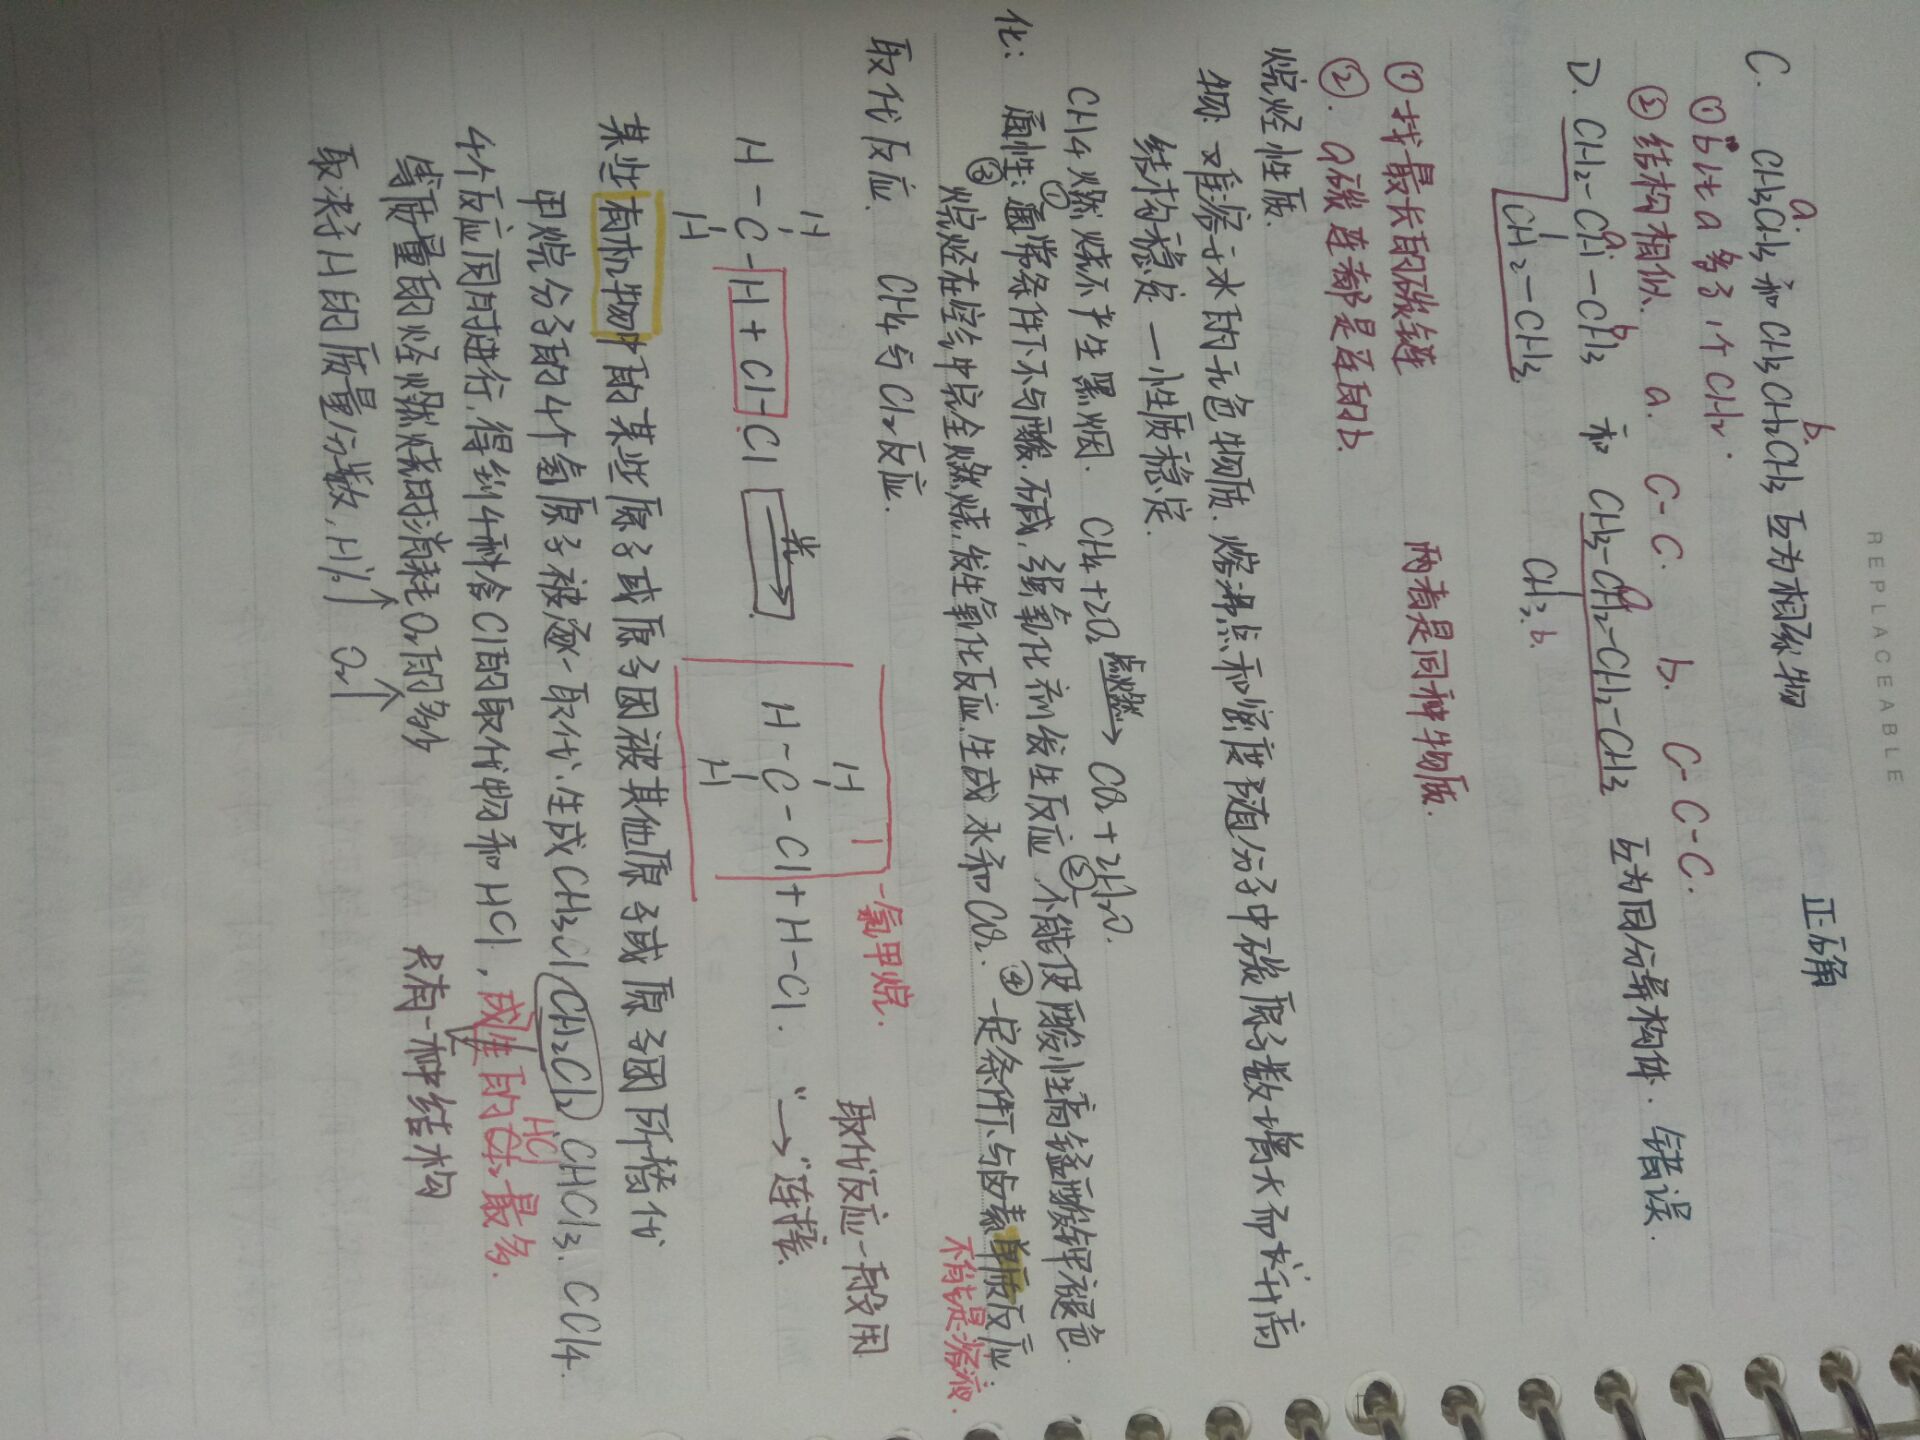 REPLACEABLE
C. CH3CH3 和 CH3CH2CH3 互为相似物 正确
a. b.
①b比a多了1个CH2.
②结构相似. a. C-C. b. C-C-C.
D. CH2-CH-CH3 和 CH3-CH2-CH2-CH3 互为同分异构体. 错误
CH2-CH3 CH3.b.
①找最长的碳链 两者是同种物质.
②. a碳连都是连的b.
烷烃性质.
物: 难溶于水的无色物质. 熔沸点和密度随分子中碳原子数增大而升高
结构稳定—性质稳定.
CH4燃烧不产生黑烟. CH4+2O2 点燃→ CO2+2H2O.
化: ①通常条件下不与酸.碱,强氧化剂发生反应 ②不能使酸性高锰酸钾褪色.
③烷烃在空气中完全燃烧,发生氧化反应,生成水和CO2. ④一定条件下与卤素单质反应.
不能是溶液.
取代反应. CH4与Cl2反应. 一氯甲烷. 取代反应一般用
H H
H-C-H+Cl-Cl 光→ H-C-Cl+H-Cl. "→"连接.
H H
某些有机物中的某些原子或原子团被其他原子或原子团所替代
甲烷分子的4个氢原子被逐一取代.生成CH3Cl CH2Cl2 CHCl3. CCl4.
HCl
4个反应同时进行,得到4种含Cl的取代物和HCl,生成的最多.
等质量的烃燃烧时消耗O2的多少 只有一种结构
取决于H的质量分数, H%↑ O2↑